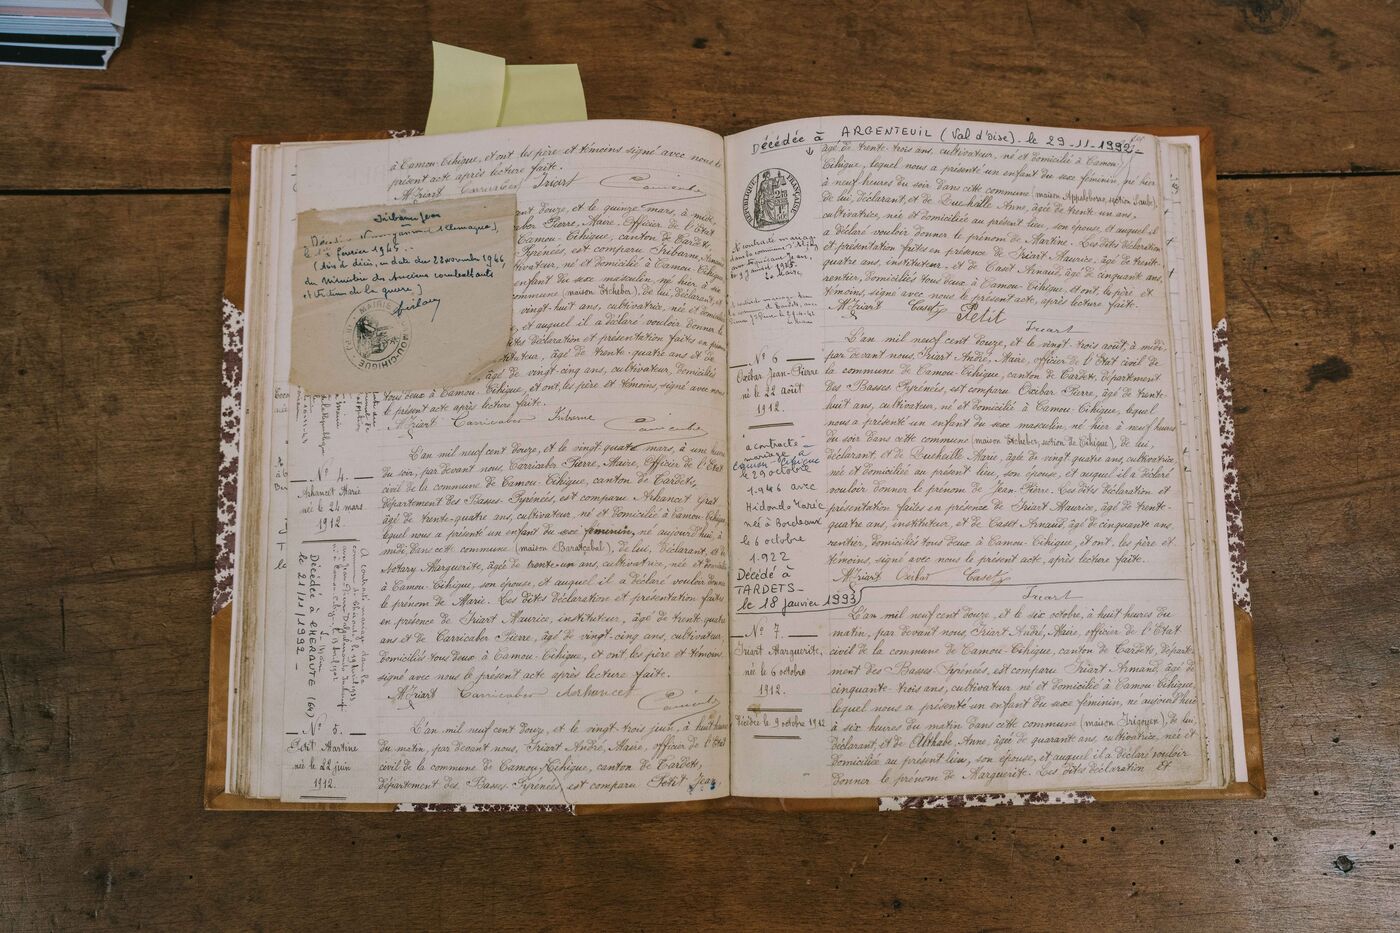 à Camou-Cihigue, et ont les père et témoins signé avec nous le
présent acte après lecture faite.
Iriart
Iribarne Jean
Décédé
le février 1945
(avis de décès, en date du 28 novembre 1946
du Ministère des Anciens combattants
et Victimes de la guerre)
MAIRIE
CAMOU-CIHIGUE
douze, et le quinze mars, à midi,
Pierre, Maire, Officier de l'Etat
Camou-Cihigue, canton de Tardets,
Pyrénées, est comparu Iribarne,
cultivateur, né et domicilié à Camou-Cihigue
enfant du sexe masculin, né hier à
commune (maison Etcheber), de lui, déclarant, et
vingt-huit ans, cultivatrice, née et domiciliée
et auquel il a déclaré vouloir donner le
dites déclaration et présentation faites en présence
instituteur, âgé de trente-quatre ans et de
âgé de vingt-cinq ans, cultivateur, domiciliés
tous deux à Camou-Cihigue, et ont, les père et témoins, signé avec nous
le présent acte après lecture faite.
Carricaber Iribarne
N° 4.
Arhancet Marie
née le 24 mars
1912
Décédée à CHERAUTE (64)
le 21/11/1992
L'an mil neuf cent douze, et le vingt quatre mars, à une heure
du soir, par devant nous, Carricaber Pierre, Maire, Officier de l'Etat
civil de la commune de Camou-Cihigue, canton de Tardets,
département des Basses-Pyrénées, est comparu Arhancet
âgé de trente-quatre ans, cultivateur, né et domicilié à Camou-Cihigue,
lequel nous a présenté un enfant du sexe féminin, né aujourd'hui, à
midi dans cette commune (maison Baratçabal), de lui, déclarant, et de
Notary Marguerite, âgée de trente-un ans, cultivatrice, née et domiciliée
à Camou-Cihigue, son épouse, et auquel il a déclaré vouloir donner
le prénom de Marie. Les dites déclaration et présentation faites
en présence de Iriart Maurice, instituteur, âgé de trente-quatre
ans et de Carricaber Pierre, âgé de vingt-cinq ans, cultivateur,
domiciliés tous deux à Camou-Cihigue, et ont, les père et témoins
signé avec nous le présent acte après lecture faite.
Carricaber Arhancet
N° 5.
Petit Martine
née le 22 juin
1912.
L'an mil neuf cent douze, et le vingt trois juin, à huit heures
du matin, par devant nous, Iriart André, Maire, officier de l'Etat
civil de la commune de Camou-Cihigue, canton de Tardets,
département des Basses Pyrénées, est comparu Petit Jean,
Décédée à ARGENTEUIL (Val d'oise). le 29-11-1992-
REPUBLIQUE FRANÇAISE
âgé de trente-trois ans, cultivateur, né et domicilié à Camou-
Cihigue, lequel nous a présenté un enfant du sexe féminin, né hier
à neuf heures du soir dans cette commune (maison
de lui, déclarant, et de Queheille Anne, âgée de trente un ans,
cultivatrice, née et domiciliée au présent lieu, son épouse, et auquel il
a déclaré vouloir donner le prénom de Martine. Les dites déclaration
et présentation faites en présence de Iriart Maurice, âgé de trente-
quatre ans, instituteur, et de Caset Arnaud, âgé de cinquante ans,
rentier, domiciliés tous deux à Camou-Cihigue, et ont, les père et
témoins, signé avec nous le présent acte, après lecture faite.
Petit
Iriart
A contracté mariage
dans la commune
N° 6
Oxibar Jean-Pierre
né le 22 août
1912.
L'an mil neuf cent douze, et le vingt trois août, à midi,
par devant nous Iriart André, Maire, officier de l'Etat civil de
la commune de Camou-Cihigue, canton de Tardets, Département
des Basses Pyrénées, est comparu Oxibar Pierre, âgé de trente-
huit ans, cultivateur, né et domicilié à Camou-Cihigue, lequel
nous a présenté un enfant du sexe masculin, né hier à neuf heures
du soir dans cette commune (maison Etcheber, section de Cihigue), de lui,
déclarant, et de Queheille Marie, âgée de vingt quatre ans, cultivatrice
née et domiciliée au présent lieu, son épouse, et auquel il a déclaré
vouloir donner le prénom de Jean-Pierre. Les dites déclaration et
présentation faites en présence de Iriart Maurice, âgé de trente-
quatre ans, instituteur, et de Caset Arnaud, âgé de cinquante ans,
rentier, domiciliés tous deux à Camou-Cihigue, et ont, les père et
témoins, signé avec nous le présent acte, après lecture faite.
Oxibar
Iriart
a contracté
mariage à
Camou-Cihigue
le 29 octobre
1.946 avec
Hidondo Marie
née à Bordeaux
le 6 octobre
1.922
Décédé à
TARDETS_
le 18 janvier 1993
N° 7.
Iriart Marguerite,
née le 6 octobre
1912.
Décédée le 9 octobre 1912
L'an mil neuf cent douze, et le six octobre, à huit heures du
matin, par devant nous, Iriart André, Maire, officier de l'Etat
civil de la commune de Camou-Cihigue, canton de Tardets, départe-
ment des Basses Pyrénées, est comparu Iriart Armand, âgé de
cinquante-trois ans, cultivateur né et domicilié à Camou-Cihigue,
lequel nous a présenté un enfant du sexe féminin, né aujourd'hui
à six heures du matin dans cette commune (maison Irigoyen), de lui,
déclarant, et de Althabe Anne, âgée de quarante ans cultivatrice, née et
domiciliée au présent lieu, son épouse, et auquel il a déclaré vouloir
donner le prénom de Marguerite. Les dites déclaration et